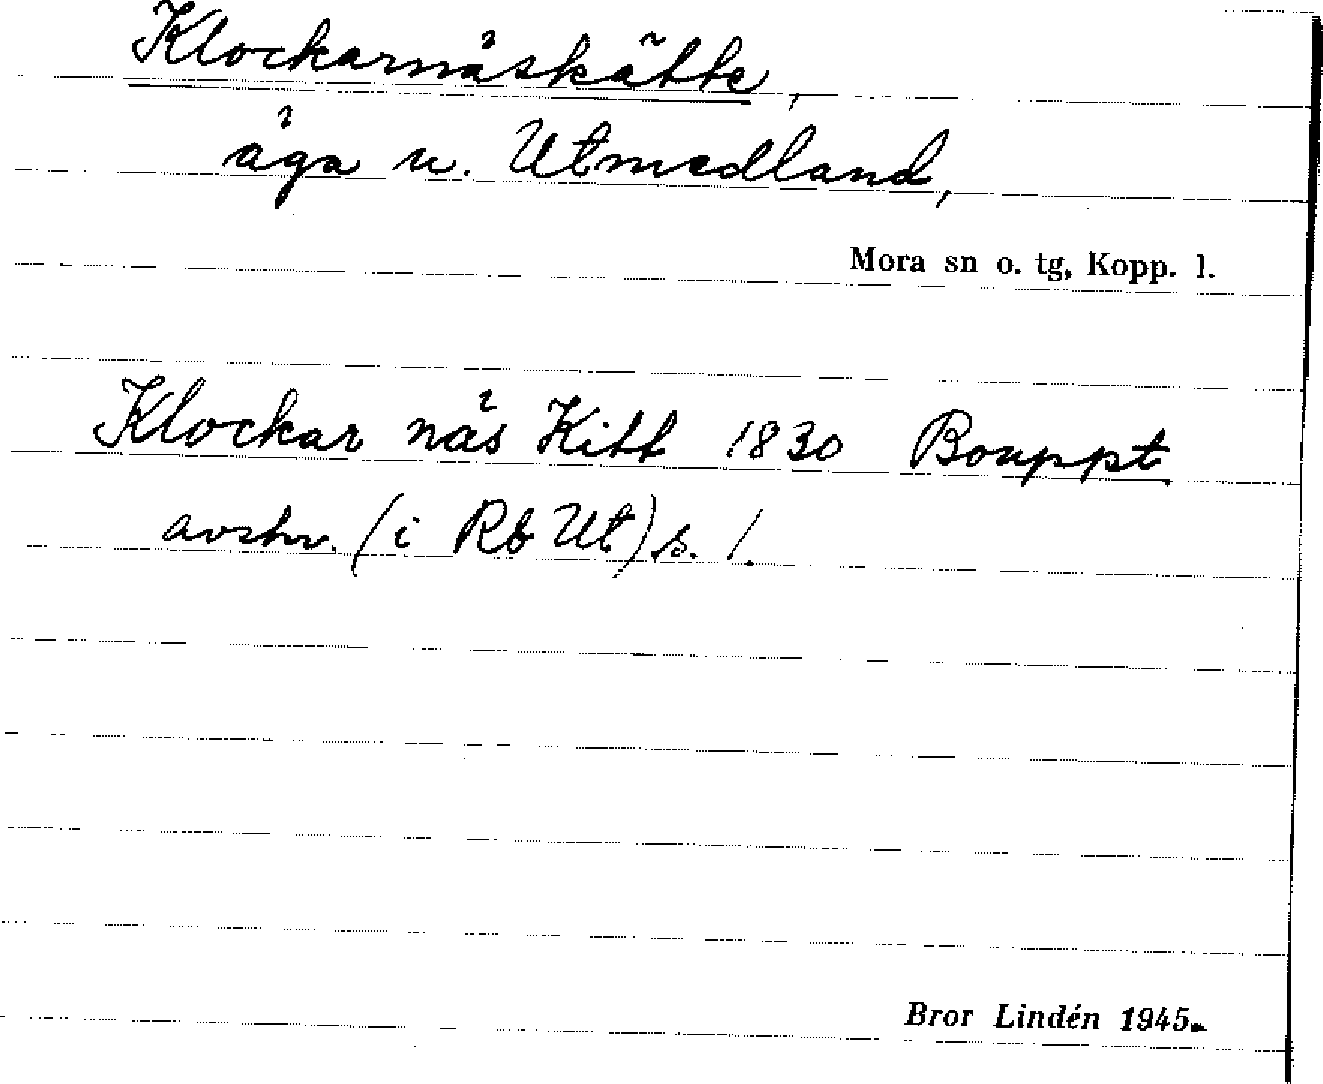 Klockarnäskätte,
äga u. Utmedland,
Mora sn o. tg, Kopp. l.
Klockar näs Kitt 1830 Bouppt
avskr. (i Rb Ut) s. 1.
Bror Lindén 1945.